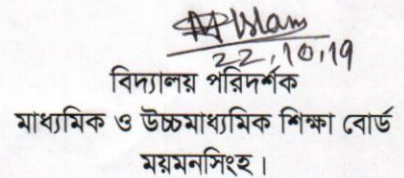 22.10.19
বিদ্যালয় পরিদর্শক
মাধ্যমিক ও উচ্চমাধ্যমিক শিক্ষা বোর্ড
ময়মনসিংহ।